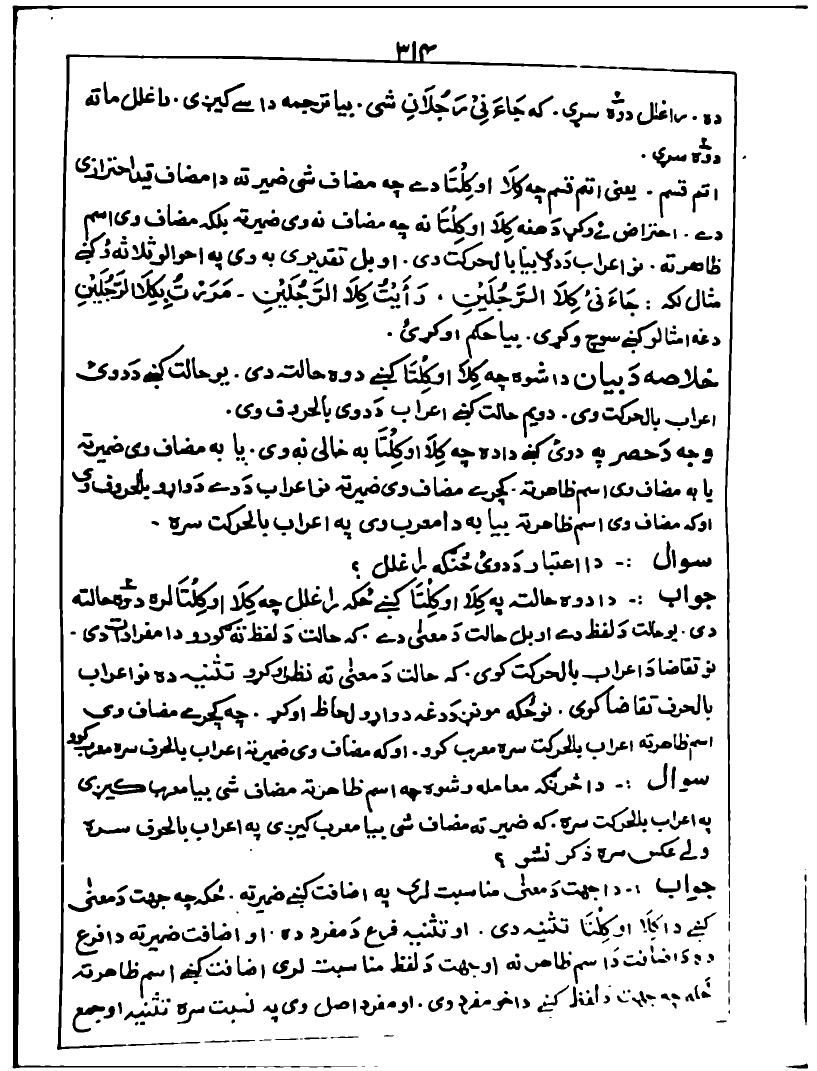 ۳۱۴
ده. راغلل دوه سړی. که جَاءَنِیْ رَجُلَانِ شی. بیا ترجمه داسے کیږی. راغلل ماته
دوه سړی.
اتم قسم. یعنی اتم قسم چه کِلَا اوکِلْتَا دے چه مضاف شی ضمیر ته دا مضاف قید احترازی
دے. احتراض ئے وکړ دَهغه کِلَا اوکِلْتَا نه چه مضاف نه وی ضمیر ته بلکه مضاف وی اسم
ظاهر ته. نو اعراب دَدے بیا بالحرکت دی. او بل تقدیری به وی په احوالو ثلاثه ؤ کښے
مثال لکه: جَاءَنِیْ کِلَا الرَّجُلَیْنِ، رَأَیْتُ کِلَا الرَّجُلَیْنِ - مَرَرْتُ بِکِلَا الرَّجُلَیْنِ
دغه امثالو کښے سوچ وکړی. بیا حکم اوکړئ.
خلاصه دَبیان داشوه چه کِلَا اوکِلْتَا کښے دوه حالته دی. یو حالت کښے دَدوئ
اعراب بالحرکت وی. دویم حالت کښے اعراب دَدوی بالحروف وی.
وجه دَحصر په دوئ کښے داده چه کِلَا اوکِلْتَا به خالی نه وی. یا به مضاف وی ضمیر ته
یا به مضاف وی اسم ظاهر ته. کچرے مضاف وی ضمیر ته نو اعراب دَدے دواړو بالحروف وی
اوکه مضاف وی اسم ظاهر ته بیا به دا معرب وی په اعراب بالحرکت سره -
سوال :- دا اعتبار دَدوئ څنګه راغلل؟
جواب :- دا دوه حالته په کِلَا اوکِلْتَا کښے ځکه راغلل چه کِلَا اوکِلْتَا لره دوه حالته
دی. یو حالت دَلفظ دے او بل حالت دَمعنٰی دے. که حالت دَلفظ ته ګورو دا مفرادات دی -
نو تقاضا دَاعراب بالحرکت کوی. که حالت دَمعنٰی ته نظر اوکړو تثنیه ده نو اعراب
بالحرف تقاضا کوی. نو ځکه مونږ دَدغه دواړو لحاظ اوکړ. چه کچرے مضاف وی
اسم ظاهر ته اعراب بالحرکت سره معرب کوو. اوکه مضاف وی ضمیر ته اعراب بالحرف سره معرب کوو
سوال :- دا څرنګه معامله وشوه چه اسم ظاهر ته مضاف شی بیا معرب کیږی
په اعراب بالحرکت سره. که ضمیر ته مضاف شی بیا معرب کیږی په اعراب بالحرف سره
ولے عکس سره ذکر نشو؟
جواب :- دا جهت دَمعنٰی مناسبت لری په اضافت کښے ضمیر ته. ځکه چه جهت دَمعنٰی
کښے دا کِلَا اوکِلْتَا تثنیه دی. او تثنیه فرع دَمفرد ده. او اضافت ضمیر ته دا فرع
ده دَاضافت دَاسم ظاهر نه او جهت دَلفظ مناسبت لری اضافت کښے اسم ظاهر ته
ځکه چه جهت دلفظ کښے داخو مفرد وی. او مفرد اصل وی په نسبت سره تثنیه او جمع